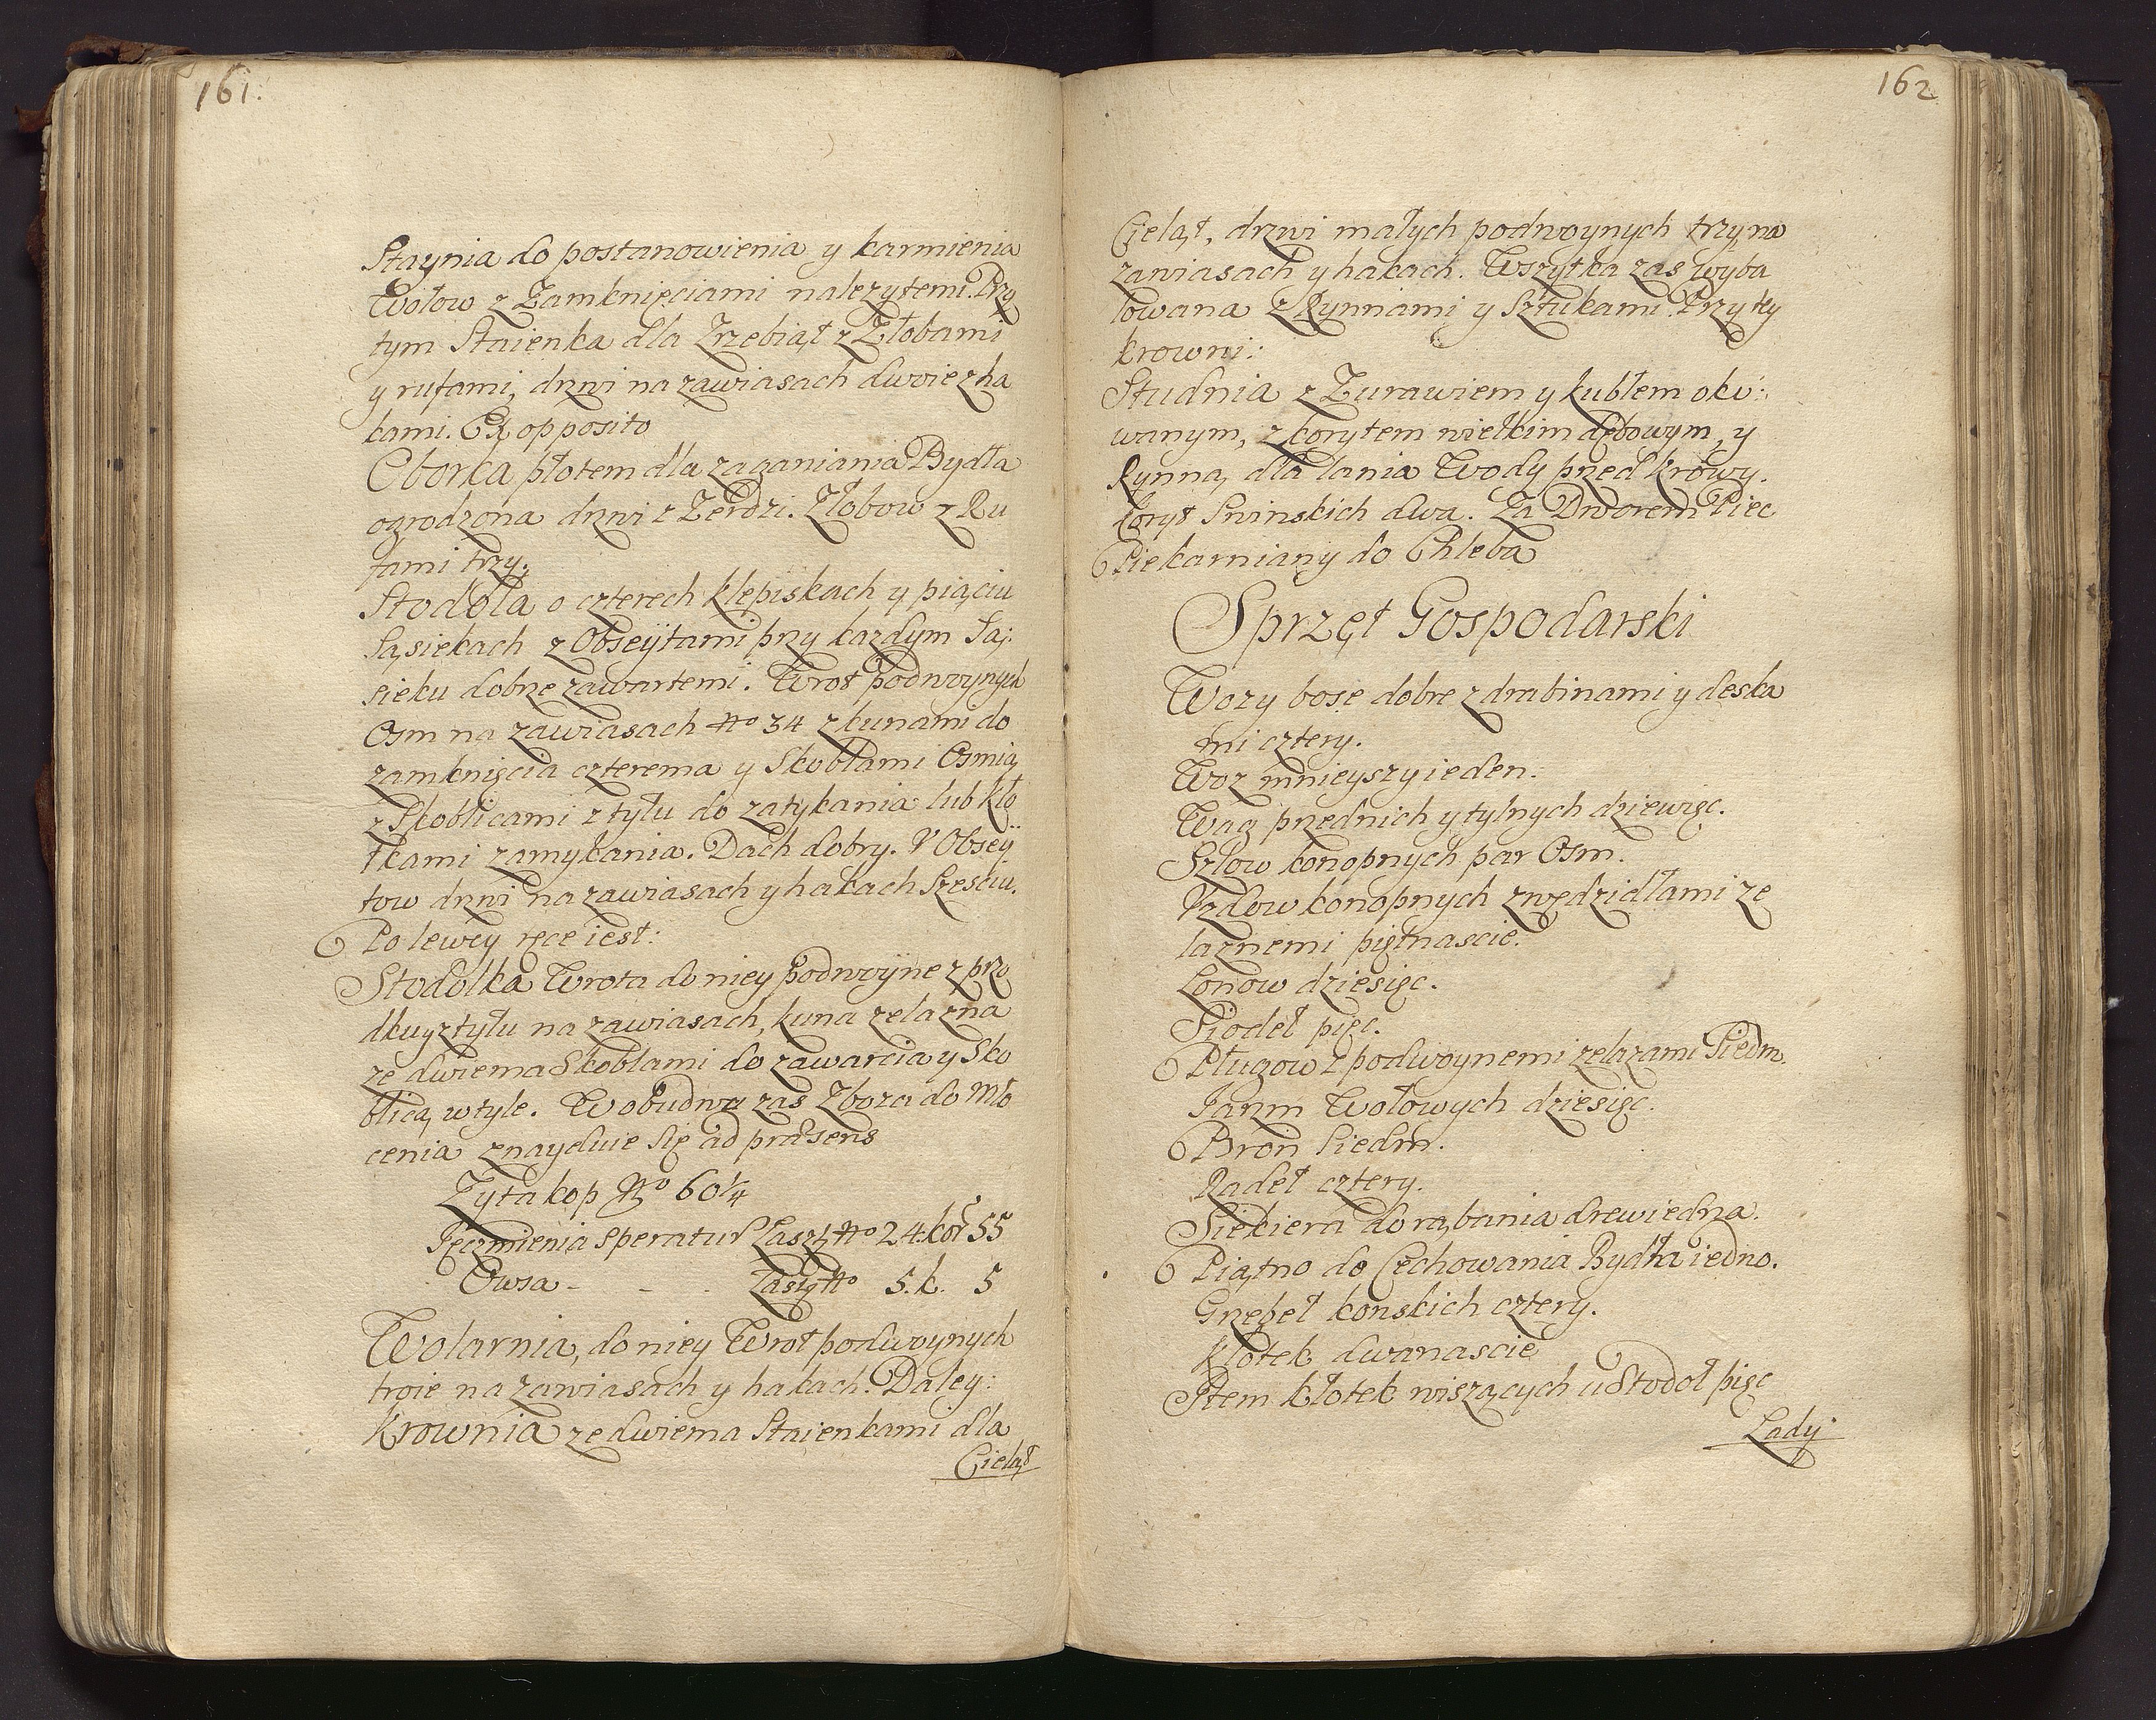 161.
Staynia do postanowienia y karmienia
Wołow z Zamknięciami nalezytemi. Przy
tym Staienka dla Zrzebiąt z Złobami
y rufami, drzwi na zawiasach dwoie z ha
kami. Ex opposito
Oborka płotem dla zaganiania Bydła
ogrodzona drzwi z Zerdzi. Złobow z Ru
fami trzy.
Stodoła o czterech klepiskach y piąciu
Sąsiekach z Obseÿtami przy kazdym Są:
sieku dobrze zawartemi. Wrot podwoynych
Osm na zawiasach No 34 z kunami do
zamknięcia czterema y Skoblami Osmią
z Skoblicami z tyłu do zatykania lub kło
tkami zamykania. Dach dobry. V Obseÿ
tow drzwi na zawiasach y hakach Szesciu.
Po lewey ręce iest:
Stodołka Wrota do niey podwoyne z przo
dku y z tyłu na zawiasach, kuna zelazna
ze dwiema Skoblami do zawarcia y Sko
blicą w tyle. W obudwu zas Zboza do Mło
cenia znayduie Się ad præsens
Zyta kop No 60 1/4
Jęczmienia speratur Laszt No 24. kor 55
Owsa - - . Laszt No 5. k. 5
Wolarnia, do niey Wrot podwoynych
troie na zawiasach y hakach. Daley:
Krownia ze dwiema Staienkami dla
Cieląt
162
Cieląt, drzwi małych podwoynych trzy na
zawiasach y hakach. Wszytka zas wyba
lowana z Rynnami y Sztukami. Przy tey
krowni:
Studnia z Zurawiem y kubłem oku:
wanym, z korytem wielkim dębowym, y
Rynną, dla lania Wody przed krowy.
Koryt Swinskich dwa. Za Dworem Piec
Piekarniany do Chleba
Sprzęt Gospodarski
Wozy bose dobre z drabinami y deska
mi cztery.
Woz mnieyszy ieden.
Wag przednich y tylnych dziewięc.
Szlow konopnych par Osm.
Vzdow konopnych z wędzidłami ze
laznemi piętnascie.
Lonow dziesięc.
Siodeł pięc.
Pługow z podwoynemi zelazami Siedm.
Jarzm Wołowych dziesięc.
Bron Siedm.
Radeł cztery.
Siekiera do rąbania drew iedna.
Piątno do Cechowania Bydła iedno.
Grzebeł konskich cztery.
Kłotek dwanascie
Item kłotek wiszących u Stodoł pięc
Lady